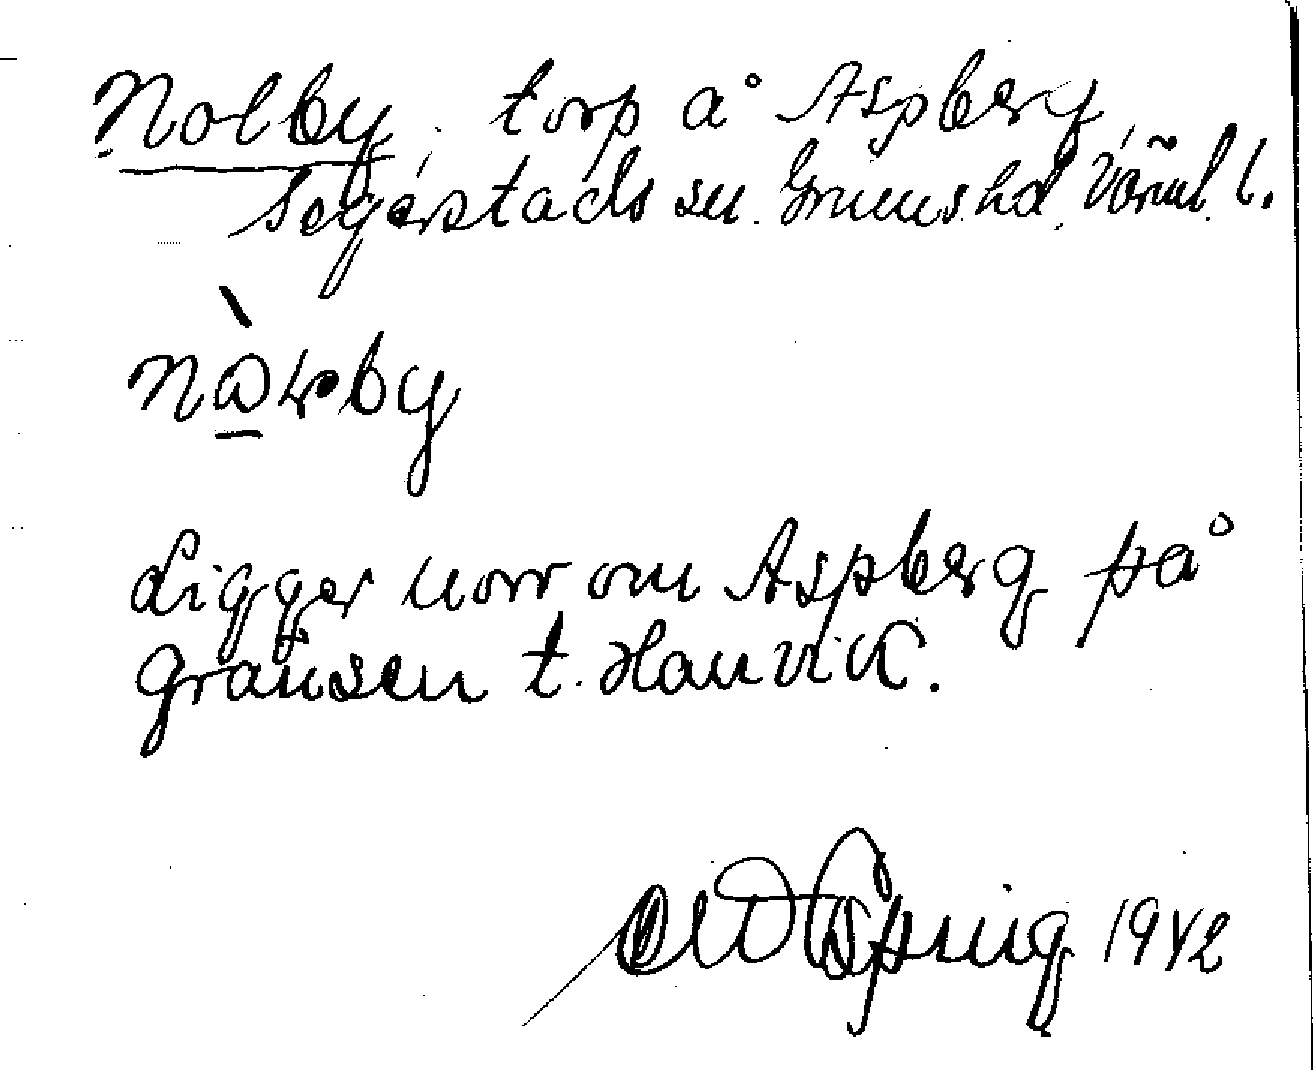 Nolby. torp å Asperg
Segerstads sn. Grums hd. Värml. l.
by
Ligger norr om Aspberg på
gränsen t. Hanvik.
Spring 1942